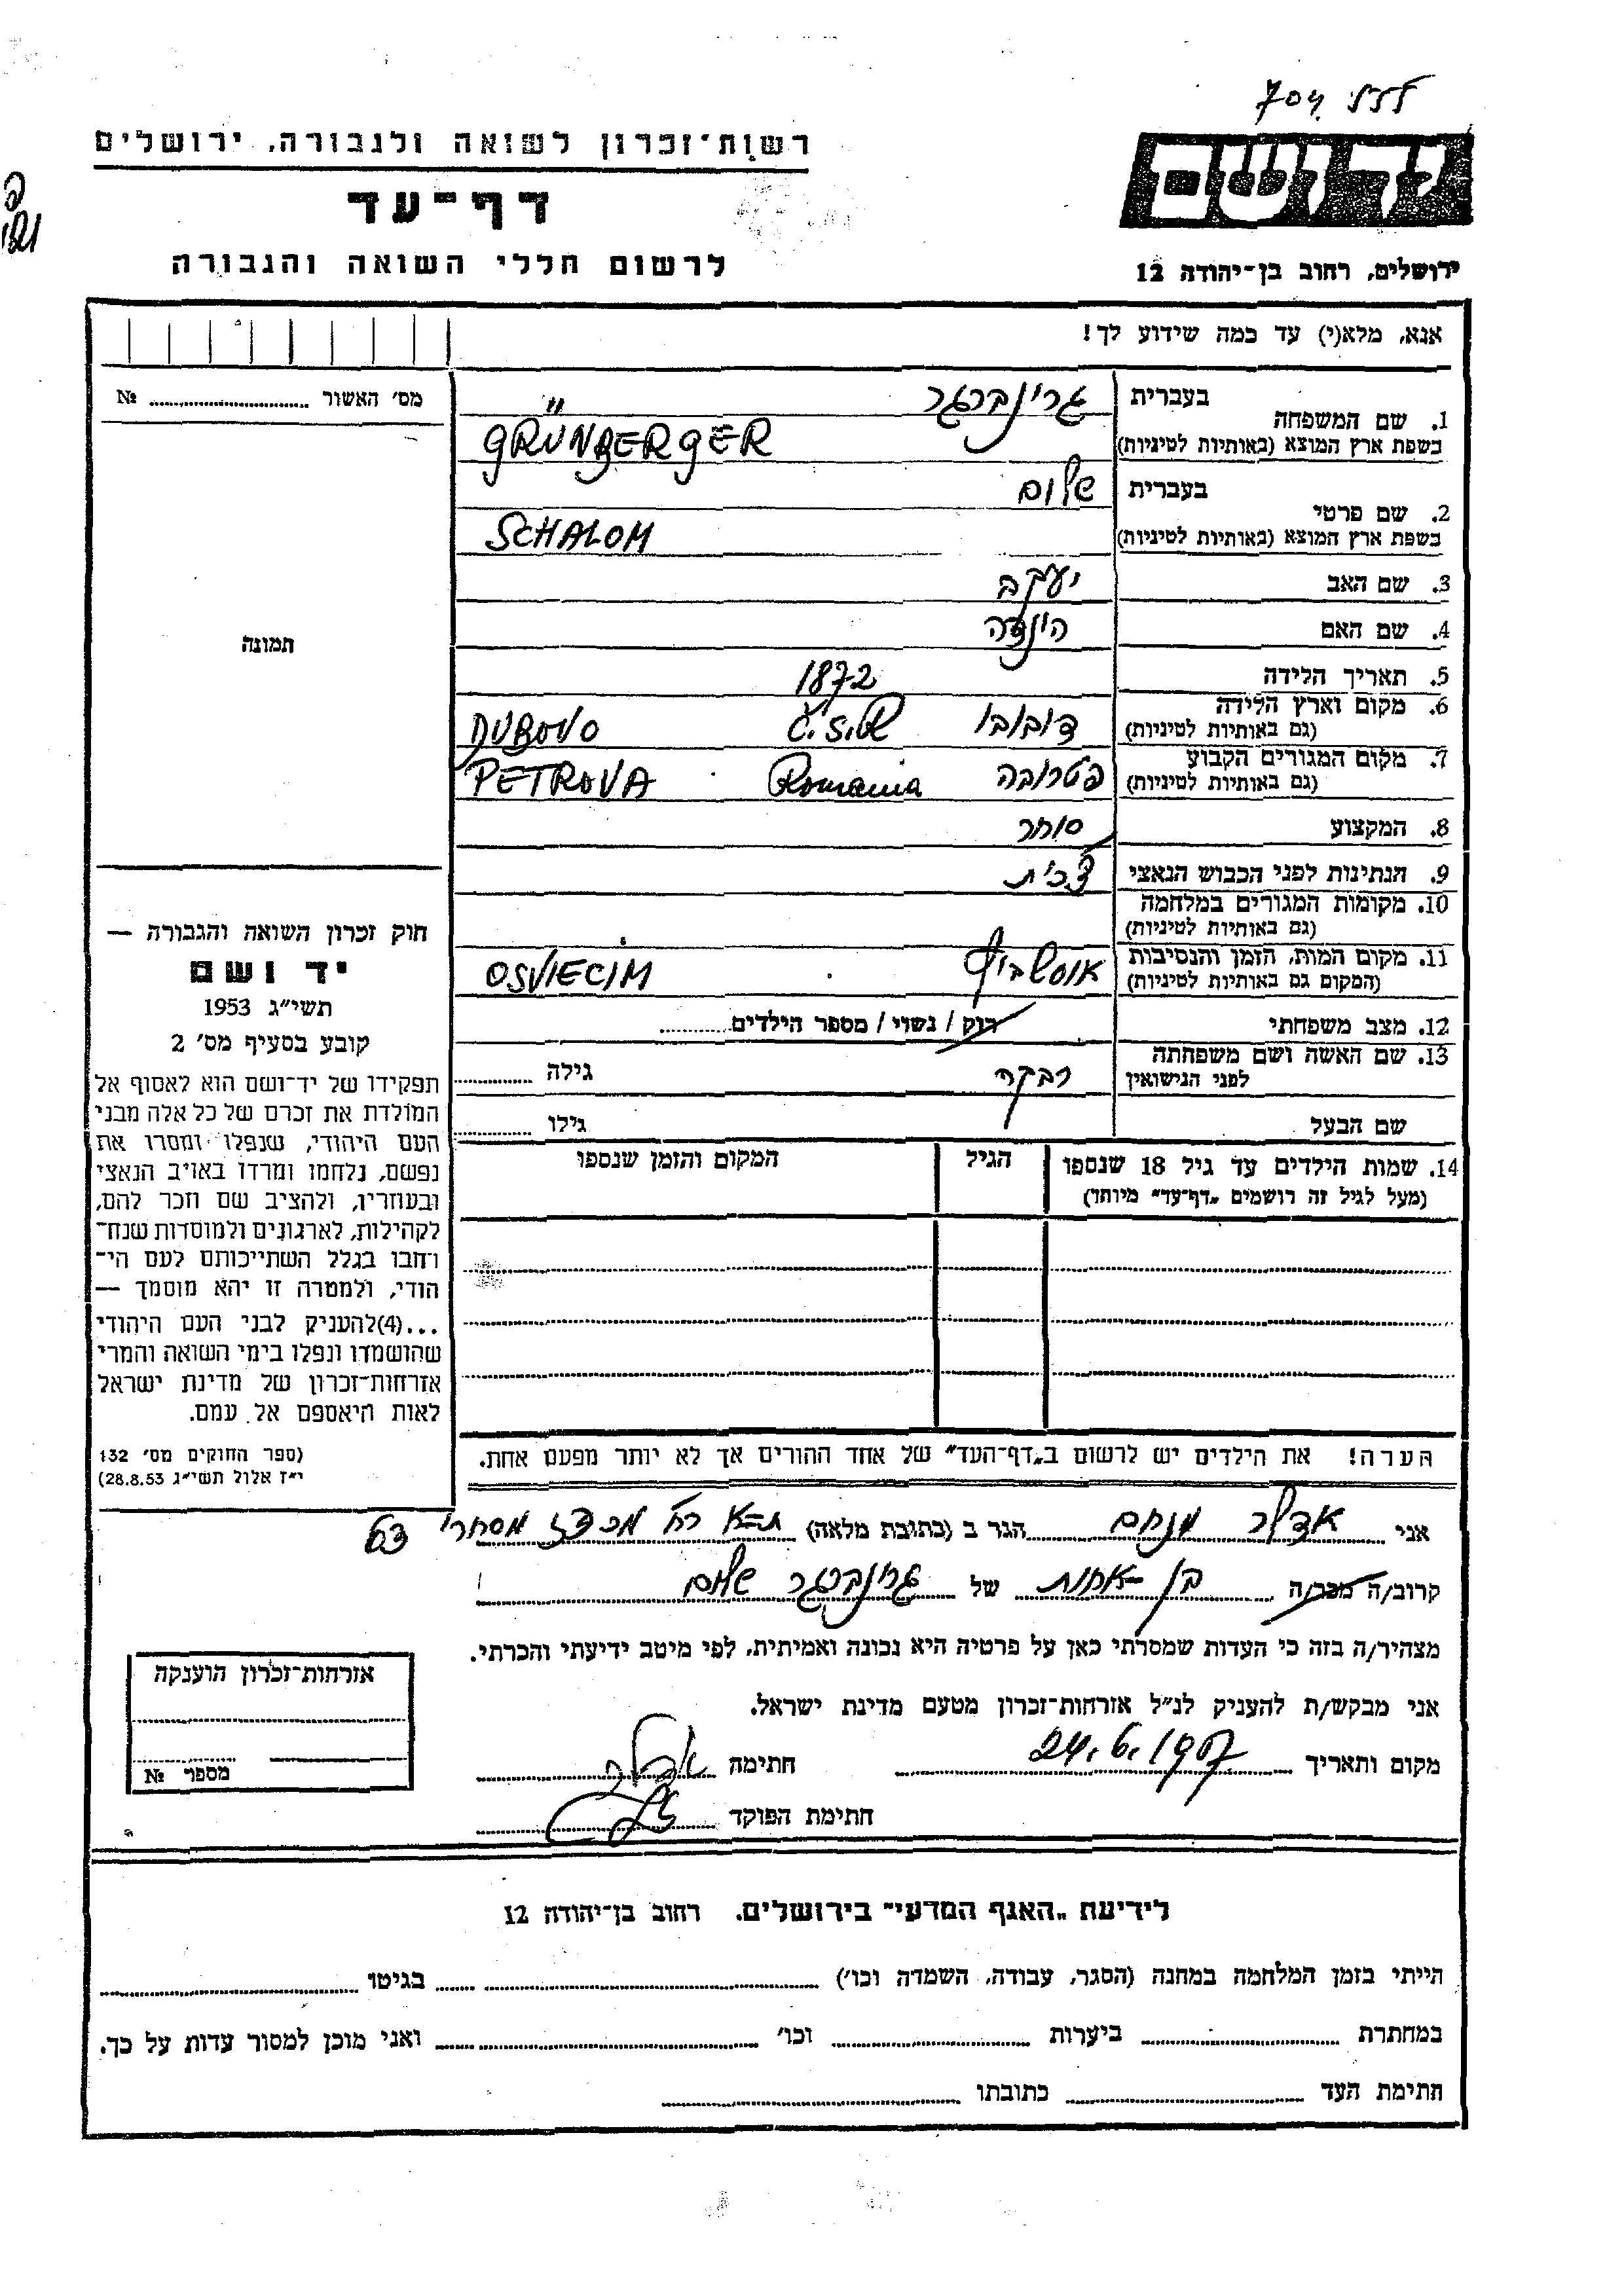 704
רשות־זכרון לשואה ולגבורה, ירושלים
יד ושם
דף־עד
לרשום חללי השואה והגבורה
ירושלים, רחוב בן־יהודה 12
אנא, מלא(י) עד כמה שידוע לך!
מס׳ האשור № 
1. שם המשפחה בעברית גרינברגר
בשפת ארץ המוצא (באותיות לטיניות) GRÜNBERGER
2. שם פרטי בעברית שלום
בשפת ארץ המוצא (באותיות לטיניות) SCHALOM
3. שם האב יעקב
4. שם האם הינדה
תמונה
5. תאריך הלידה 1872
6. מקום וארץ הלידה דובובו Č.S.R DUBOVO
(גם באותיות לטיניות)
7. מקום המגורים הקבוע פטרובה Romania PETROVA
(גם באותיות לטיניות)
8. המקצוע סוחר
9. הנתינות לפני הכבוש הנאצי צ׳כית
10. מקומות המגורים במלחמה
(גם באותיות לטיניות)
11. מקום המות, הזמן והנסיבות אושביץ OSVIECIM
(המקום גם באותיות לטיניות)
12. מצב משפחתי רוק / נשוי / מספר הילדים
13. שם האשה ושם משפחתה רבקה גילה
לפני הנישואין
שם הבעל גילו
14. שמות הילדים עד גיל 18 שנספו הגיל המקום והזמן שנספו
(מעל לגיל זה רושמים „דף־עד״ מיוחד)
חוק זכרון השואה והגבורה —
יד ושם
תשי״ג 1953
קובע בסעיף מס׳ 2
תפקידו של יד־ושם הוא לאסוף אל
המולדת את זכרם של כל אלה מבני
העם היהודי, שנפלו ומסרו את
נפשם, נלחמו ומרדו באויב הנאצי
ובעוזריו, ולהציב שם וזכר להם,
לקהילות, לארגונים ולמוסדות שנח־
רחבו בגלל השתייכותם לעם הי־
הודי, ולמטרה זו יהא מוסמך —
...(4)להעניק לבני העם היהודי
שהושמדו ונפלו בימי השואה והמרי
אזרחות־זכרון של מדינת ישראל
לאות היאספם אל עמם.
(ספר החוקים מס׳ 132
י״ז אלול תשי״ג 28.8.53)
הערה! את הילדים יש לרשום ב„דף־העד״ של אחד ההורים אך לא יותר מפעם אחת.
אני אדלר מנחם הגר ב (כתובת מלאה) ת־א רח׳ מרכז מסחרי 63
קרוב/ה מכר/ה בן-אחות של גרינברגר שלום
מצהיר/ה בזה כי העדות שמסרתי כאן על פרטיה היא נכונה ואמיתית, לפי מיטב ידיעתי והכרתי.
אני מבקש/ת להעניק לנ״ל אזרחות־זכרון מטעם מדינת ישראל.
מקום ותאריך 24.6.1957 חתימה אדלר
חתימת הפוקד
אזרחות־זכרון הוענקה
מספר №
לידיעת „האגף המדעי״ בירושלים, רחוב בן־יהודה 12
הייתי בזמן המלחמה במחנה (הסגר, עבודה, השמדה וכו׳) בגיטו
במחתרת ביערות וכו׳ ואני מוכן למסור עדות על כך.
חתימת העד כתובתו